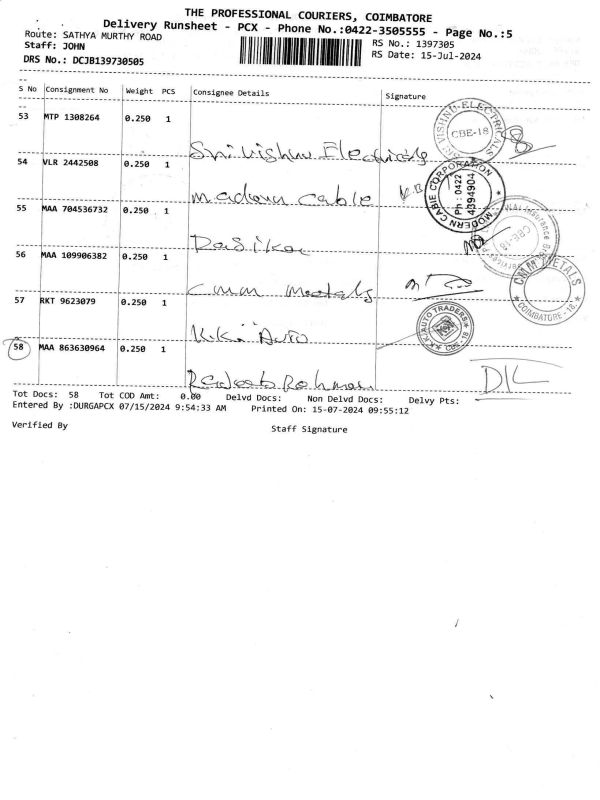 THE PROFESSIONAL COURIERS, COIMBATORE
Delivery Runsheet - PCX - Phone No.:0422-3505555 - Page No.:5
Route: SATHYA MURTHY ROAD
RS No.: 1397305
Staff: JOHN
RS Date: 15-Jul-2024
DRS No.: DCJB139730505
S No Consignment No Weight PCS Consignee Details Signature
53 MTP 1308264 0.250 1
VISHNU ELECTRICALS CBE-18
Sri Vishnu Electricals
54 VLR 2442508 0.250 1
MODERN CABLE CORPORATION Ph : 0422 4394904
Modern Cable
55 MAA 704536732 0.250 1
Insurance Services CBE-18
56 MAA 109906382 0.250 1
CMM METALS COIMBATORE - 18.
Cmm Metals
57 RKT 9623079 0.250 1
K.K. AUTO TRADERS
KK Auto
58 MAA 863630964 0.250 1
Rahman
Tot Docs: 58 Tot COD Amt: 0.00 Delvd Docs: Non Delvd Docs: Delvy Pts:
Entered By :DURGAPCX 07/15/2024 9:54:33 AM Printed On: 15-07-2024 09:55:12
Verified By
Staff Signature